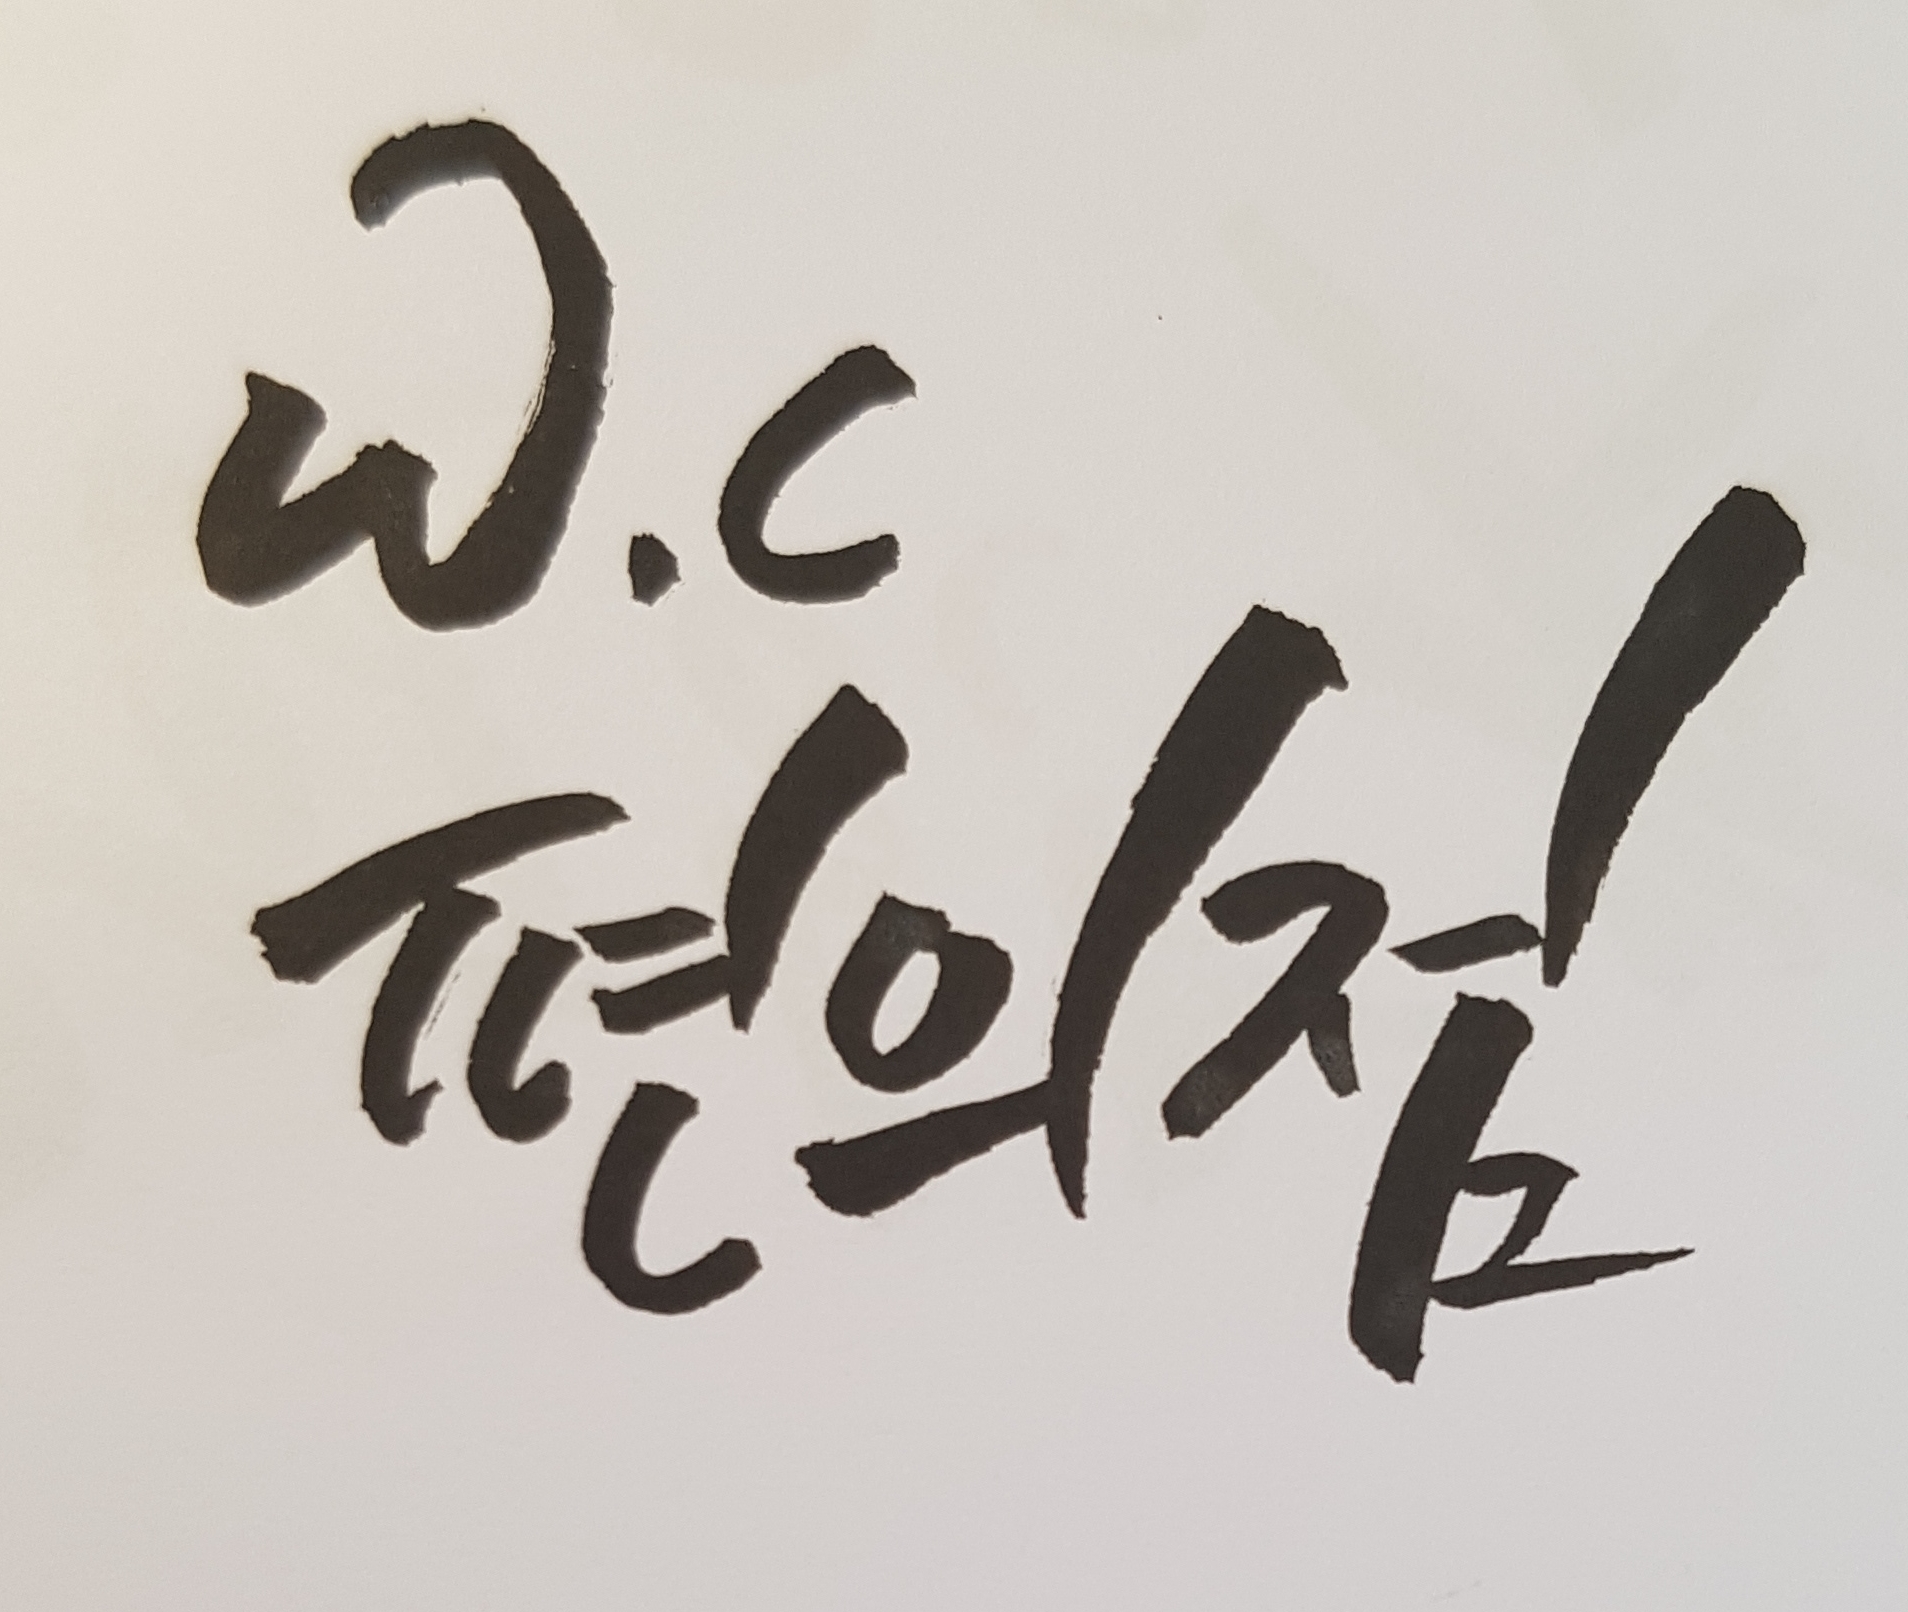 W.C
편의점